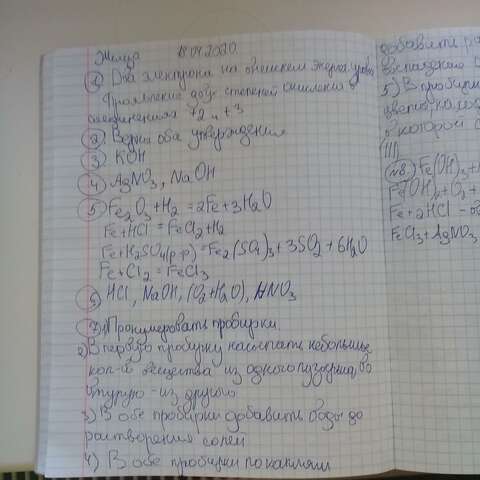 Железо 18.04.2020
1 Два электрона на внешнем энерг. уровне
Проявление двух степеней окисления в
соединениях +2 и +3
2 Верны оба утверждения
3 KOH
4 AgNO3, NaOH
5 Fe2O3+H2=2Fe+3H2O
Fe+HCl=FeCl2+H2
Fe+H2SO4(р-р)=Fe2(SO4)3+3SO2+6H2O
Fe+Cl2=FeCl3
6 HCl, NaOH, (O2+H2O), HNO3
7 1) Пронумеровать пробирки.
2) В первую пробирку насыпать небольшое
кол-во вещества из одного пузырька, во
вторую - из другого
3) В обе пробирки добавить воды до
растворения солей
4) В обе пробирки по каплям
добавить ра
5) В пробирк
в которой с
III
№8. Fe(OH)3+
Fe(OH)2+O2+
Fe+2HCl
FeCl3+AgNO3